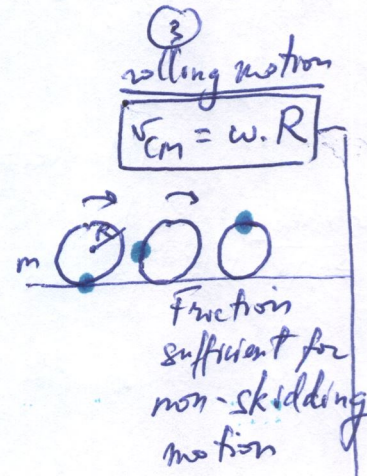 3
rolling motion
v_cm = w.R
R
m
Friction
sufficient for
non-skidding
motion